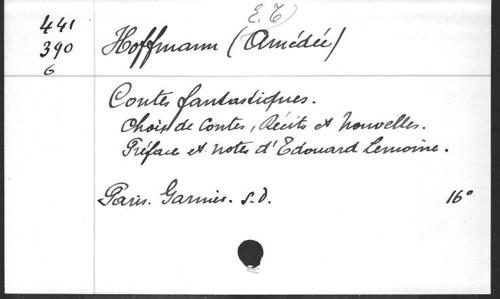 441
390
6
E. T)
Hoffmann (Amédée)
Contes fantastiques.
Choix de Contes, Récits et Nouvelles.
Préface et notes d'Edouard Lemoine.
Paris. Garnier. s.d. 16°